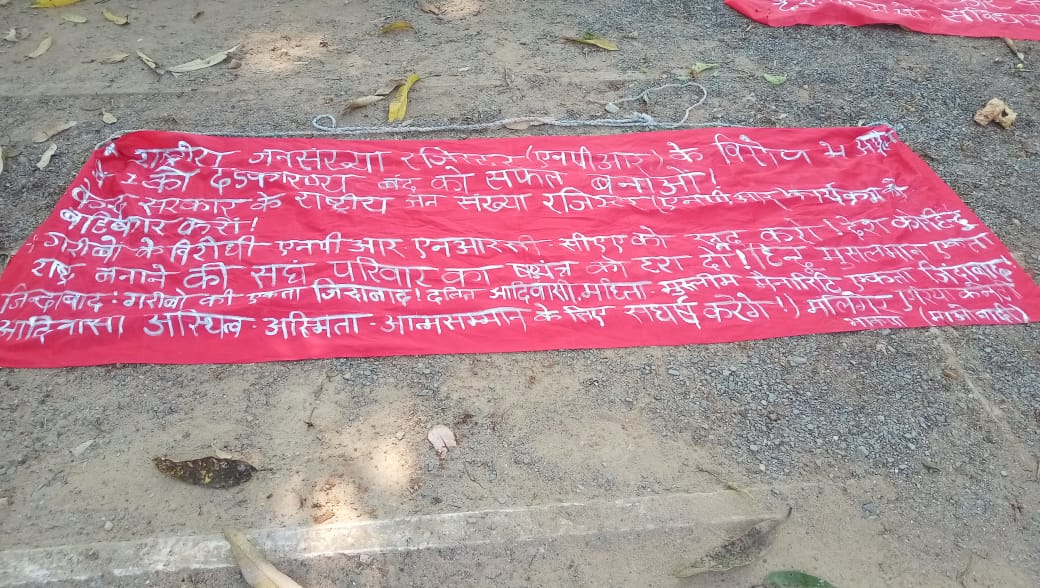 राष्ट्रीय जनसंख्या रजिस्टर (एनपीआर) के विरोध में
को दंडकारण्य बंद को सफल बनाओ!
केन्द्र सरकार के राष्ट्रीय जन संख्या रजिस्टर (एनपीआर) कार्यक्रम को
बहिष्कार करो!
गरीबों के विरोधी एनपीआर एनआरसी - सीएए को रद्द करो! देश को हिन्दु
राष्ट्र बनाने की संघ परिवार का षड्यंत्र को हरा दो!! हिन्दु, मुसलमान एकता
जिन्दाबाद! गरीबों की एकता जिन्दाबाद! दलित आदिवासी, महिला - मुस्लीम मैनारिटि एकता जिंदाबाद
आदिवासी अस्थित्व - अस्मिता - आत्मसम्मान के लिए संघर्ष करेंगे!) एरिया कमेटी
भाकपा (माओवादी)